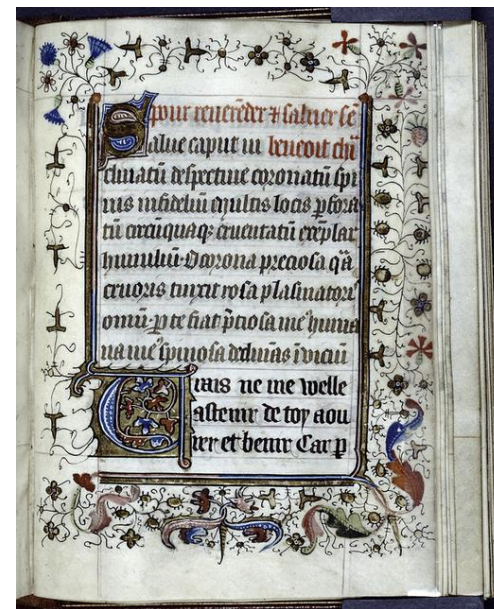 pour reuerēder ⁊ saluer sē
Salue caput in benoit chi
clinatū despectiue coronatū spi
nis infideliū multis locis ꝑfora
tū circūquaqꝫ cruentatū exēplar
humiliū. O corona preciosa qā
cruoris tinxit rosa plasmatorꝭ
omniū. ꝑ te fiat p̄ciosa me huma
na me spinosa viciū
ne me welle
astenir de toy aou
rer et benir Car p